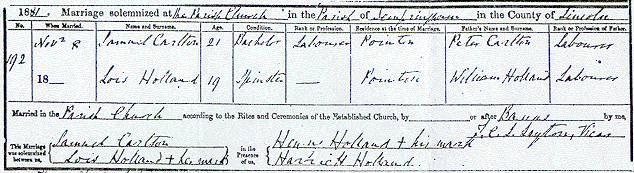 1881. Marriage solemnized at the Parish Church in the Parish of Sempringham in the County of Lincoln
No. When Married. Name and Surname. Age. Condition. Rank or Profession. Residence at the time of Marriage. Father's Name and Surname. Rank or Profession of Father.
192 Nov 8 Samuel Carlton 21 Bachelor Labourer Pointon Peter Carlton Labourer
18— Lois Holland 19 Spinster — Pointon William Holland Labourer
Married in the Parish Church according to the Rites and Ceremonies of the Established Church, by or after Banns by me,
This Marriage was solemnized between us, Samuel Carlton in the Presence of us, Holland + his mark Vicar
Lois Holland + her mark Harriett Holland